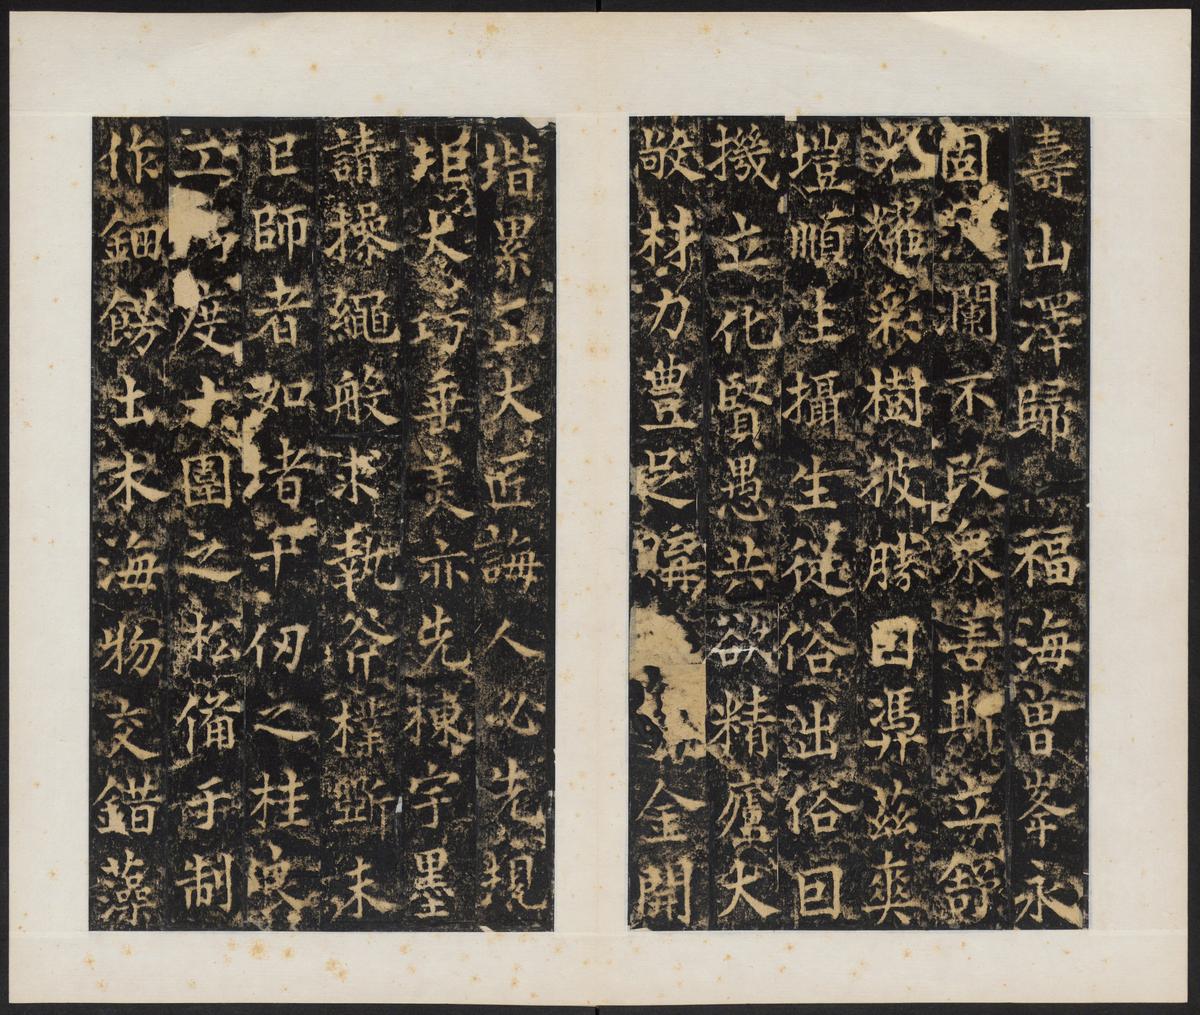 壽山澤歸福海曾峯永
固 瀾不改衆善斯立舒
光耀彩樹彼勝因馮茲爽
塏順生攝生從俗出俗回
機立化賢愚共欲精廬大
敞材力豊足 金開
堦累玉大匠誨人必先規
矩大巧垂美亦先棟宇墨
請操繩般求執斧梓斲未
已師者如堵千仞之桂
工 度十圍之松備乎制
作鈿飾土木海物交錯藻